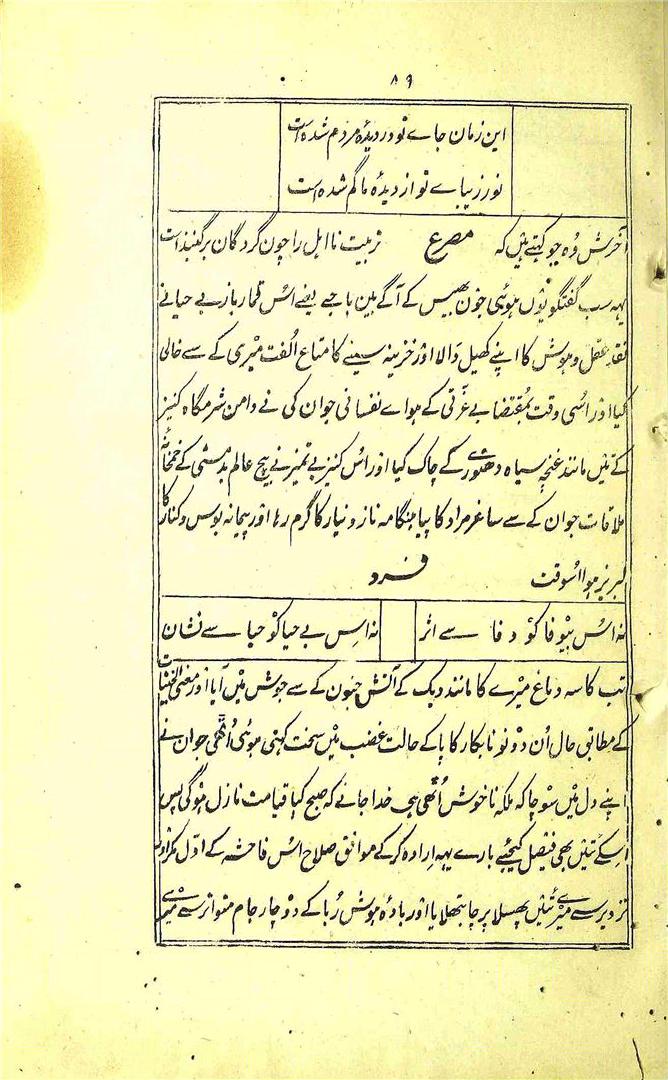 ۸۹
این زمان جاے تو در دیدۂ مردم شده است
نور زیباے تو از دیدۂ ما گم شده است
آخرش وُه جو کہتے ہیں کہ مصرع تربیت نااہل را چون گردگان بر گنبد است
یہہ سب گفتگو یوں ہوئی جون بھیس کے آگے بین باجے یعنے اُس قمار باز بے حیا نے
نقد عقل و ہوش کا اپنے کھیل ڈالا اور خزینہ سینے کا متاع اُلفت میری کے سے خالی
کیا اور اُسی وقت بمُقتضاے بے عزّتی کے ہواے نفسانی جوان کی نے دامن شرمگاه کنیز
کے تئیں مانند غنچۂ سیاہ دھتورے کے چاک کیا اور اُس کنیز بے تمیز نے بیچ عالم بدمستی کے خمخانۂ
ملاقات جوان کے سے ساغر مراد کا پیا ہنگامہ ناز و نیاز کا گرم رہا اور پیمانہ بوس و کنار کا
لبریز ہوا اُسوقت فرد
نہ اُس بیوفا کو وفا سے اثر نہ اِس بے حیا کو حیا سے نشان
تب کاسہ دماغ میرے کا مانند دیگ کے آتش جنون کے سے جوش میں آیا اور معنی الخبیثات
کے مطابق حال اُن دونو نابکار کا پا کے حالت غضب میں سخت کہتی ہوئی اُٹھی جوان نے
اپنے دل میں سوچا کہ ملکہ ناخوش اُٹھی ہی خدا جانے کہ صبح کیا قیامت نازل ہوگی پس
اِسکے تئیں بھی فیصل کیجئیے بارے یہہ اِرادہ کر کے موافق صلاح اُس فاحشہ کے اوّل مکر اور
تزویر سے میرے تئیں پھسلا پر چا بتھلایا اور بادۂ ہوش رُبا کے دو چار جام متواتر سے میرے